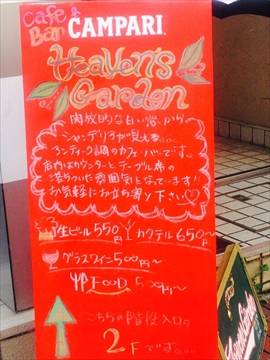 Cafe &
Bar CAMPARI
Heaven's
Garden
開放的な白い窓から
シャンデリアが見える。。。
アンティーク調のカフェ・バーです。
店内はカウンターとテーブル席の
落ちついた雰囲気となっています!!
お気軽にお立ち寄り下さい♡
生ビール550円
カクテル650~
グラスワイン500円~
FOOD 500円~
こちらの階段入口の
2Fです。。。